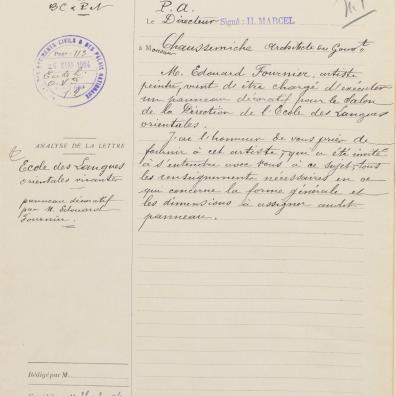 B C & P N
P. A.
Le Directeur Signé : H. MARCEL
à Monsieur Chaussemiche Architecte du Gouvt
BÂTIMENTS CIVILS & DES PALAIS NATIONAUX
1904
M. Edouard Fournier, artiste
peintre, vient d'être chargé d'exécuter
un panneau décoratif pour le Salon
de la Direction de l'Ecole des Langues
orientales.
J'ai l'honneur de vous prier de
fournir à cet artiste, qui a été invité
à s'entendre avec vous à ce sujet, tous
les renseignements nécessaires en ce
qui concerne la forme générale et
les dimensions à assigner audit
panneau.
ANALYSE DE LA LETTRE
Ecole des Langues
orientales vivantes
panneau décoratif
par M. Edouard
Fournier.
Rédigé par M.